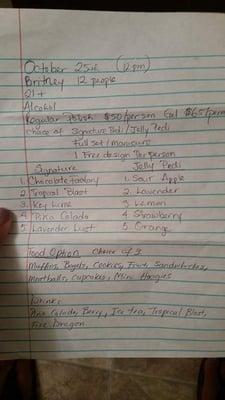 October 25th (12 pm)
Britney 12 people
21+
Alcohol
Regular Polish $50/person Gel $65/person
choice of Signature Pedi / Jelly Pedi
Full set / manicure
1 Free design Per person
Signature Jelly Pedi
1. Chocolate factory 1. Sour Apple
2. Tropical Blast 2. Lavender
3. Key Lime 3. Lemon
4. Pina Colada 4. Strawberry
5. Lavender Lust 5. Orange
Food Option choice of 3
Muffins, Bagels, Cookies, Fruit, Sandwiches,
Meatballs, Cupcakes, Mini Hoagies
Drinks
Pina Colada, Berry, Ice tea, Tropical Blast,
Fire Dragon